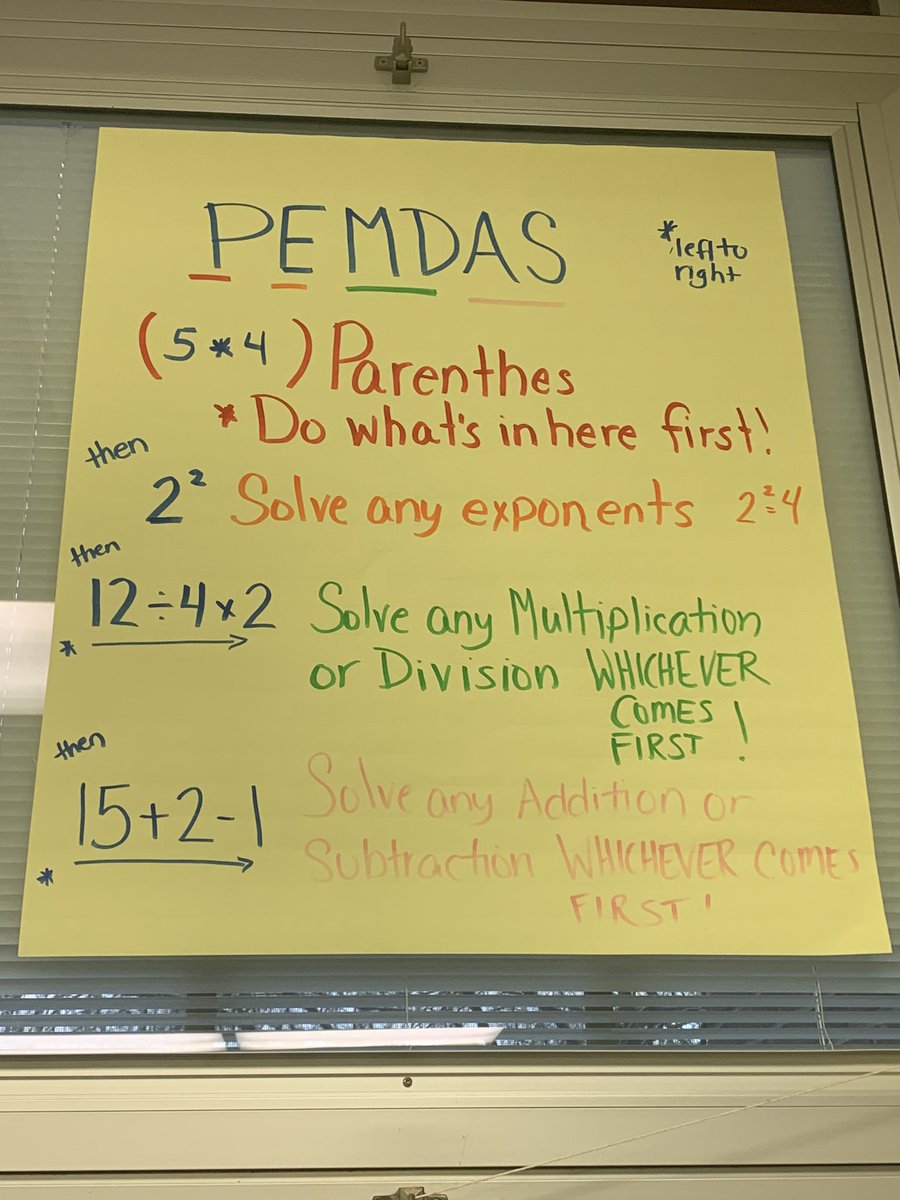 PEMDAS
* left to
right
(5 * 4) Parenthes
* Do what's in here first!
then
2² Solve any exponents 2² = 4
then
* 12 ÷ 4 x 2 Solve any Multiplication
or Division WHICHEVER
COMES
FIRST !
then
15 + 2 - 1 Solve any Addition or
* Subtraction WHICHEVER COMES
FIRST !